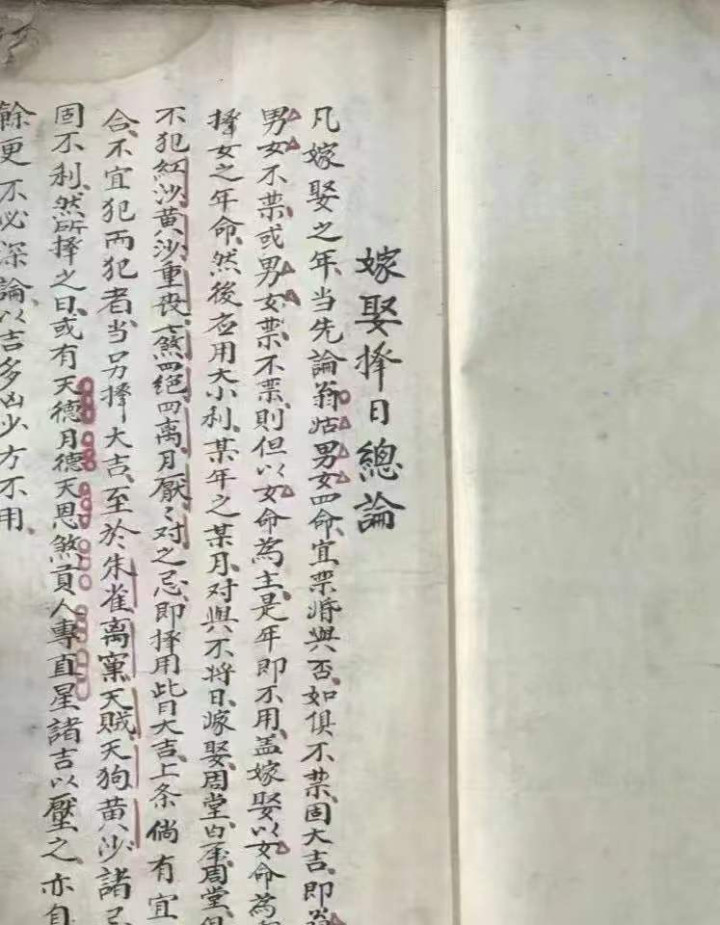 嫁娶择日總論
凡嫁娶之年、当先論翁姑男女四命、宜禁婚與否、如俱不禁、固大吉、即翁
男女不禁、或男女禁不禁、則但以女命為主、是年即不用、盖嫁娶以女命為
择女之年命、然後应用大小利、某年之某月、对與不将日、嫁娶周堂、白虎周堂、俱
不犯紅沙黄沙重丧、煞四絕四离月厭厭对之忌、即择用此日大吉、上条倘有宜
合、不宜犯而犯者、当另择大吉、至於朱雀离窠天賊天狗黄沙諸忌
固不利、然所择之日、或有天德月德天恩煞貢人專直星諸吉以壓之、亦自
餘更不必深論、以吉多凶少方不用、